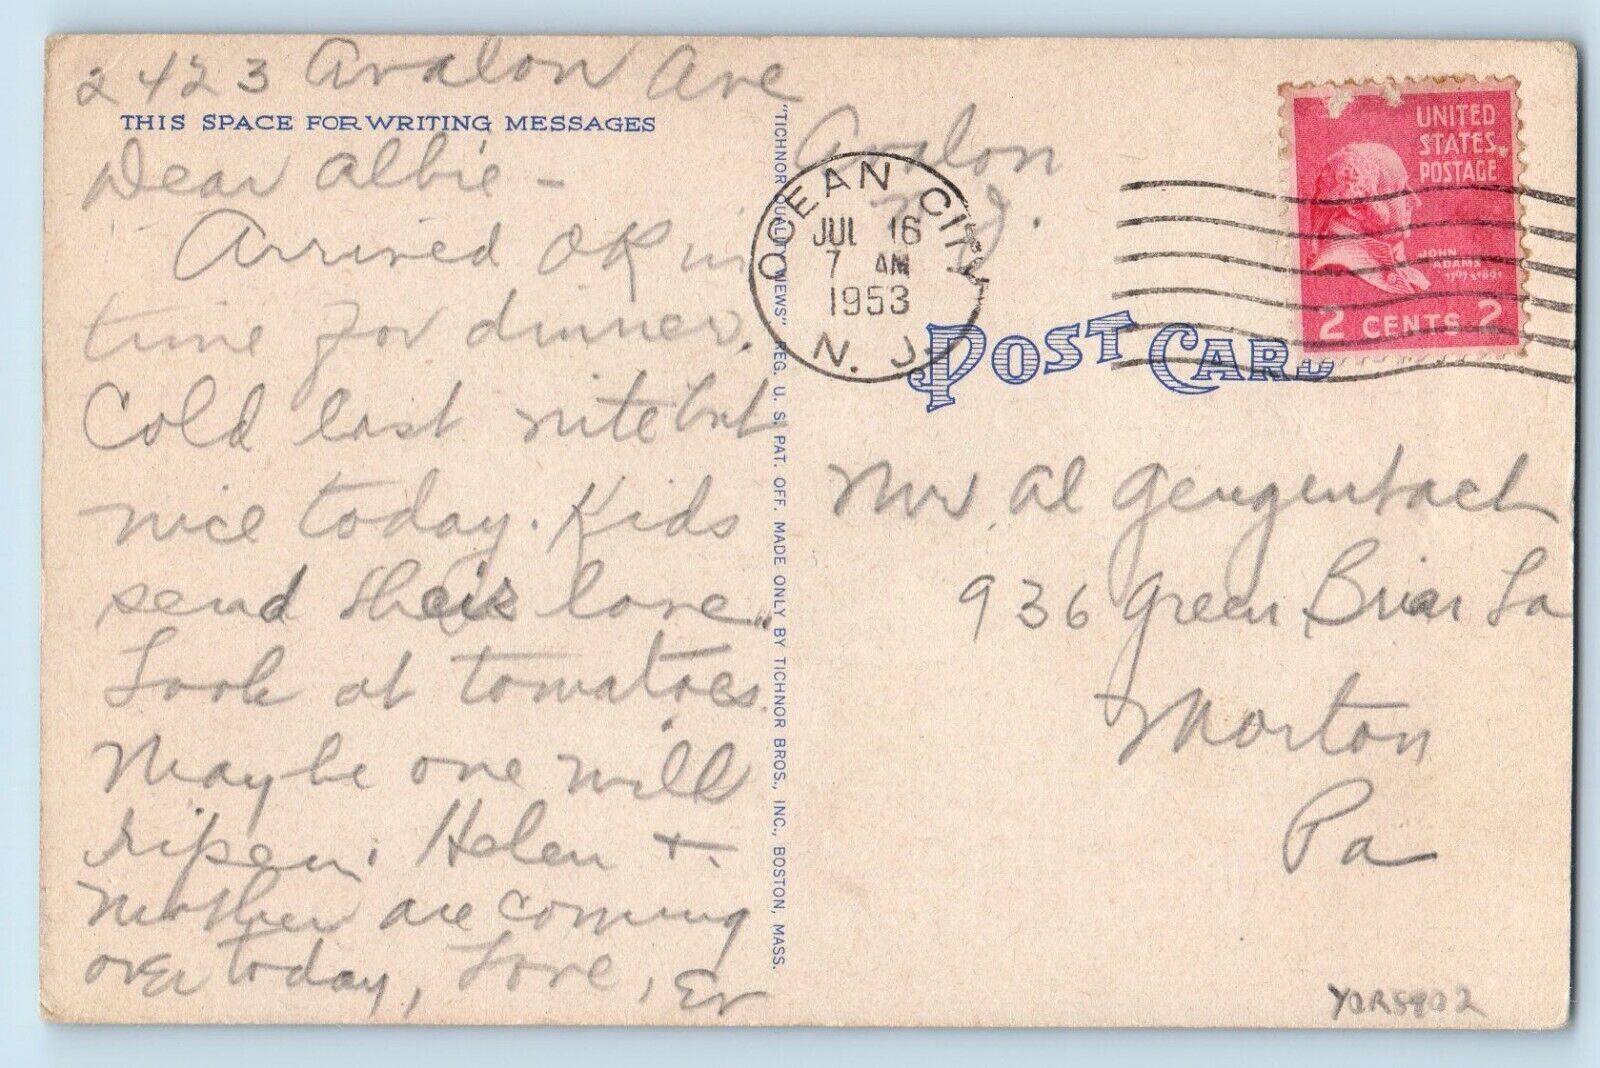 2423 Avalon Ave
Avalon
N.J.
THIS SPACE FOR WRITING MESSAGES
Dear Albie -
Arrived OK in
time for dinner.
Cold last nite but
nice today. Kids
send their love.
Look at tomatoes.
Maybe one will
ripen. Helen +
Mother are coming
over today, Love, Ev
"TICHNOR QUALITY VIEWS" REG. U. S. PAT. OFF. MADE ONLY BY TICHNOR BROS., INC., BOSTON, MASS.
OCEAN CITY
JUL 16
7 AM
1953
N. J.
UNITED
STATES
POSTAGE
JOHN
ADAMS
2 CENTS 2
POST CARD
Mr Al Gengenbach
936 Green Briar La
Morton
Pa
YOR5902